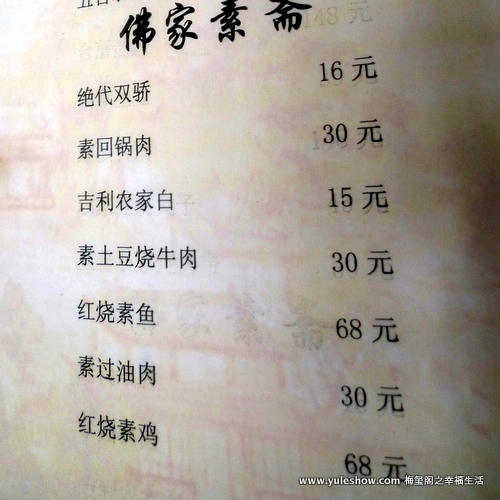 佛家素斋
绝代双骄 16元
素回锅肉 30元
吉利农家白 15元
素土豆烧牛肉 30元
红烧素鱼 68元
素过油肉 30元
红烧素鸡 68元
www.yuleshow.com 梅玺阁之幸福生活